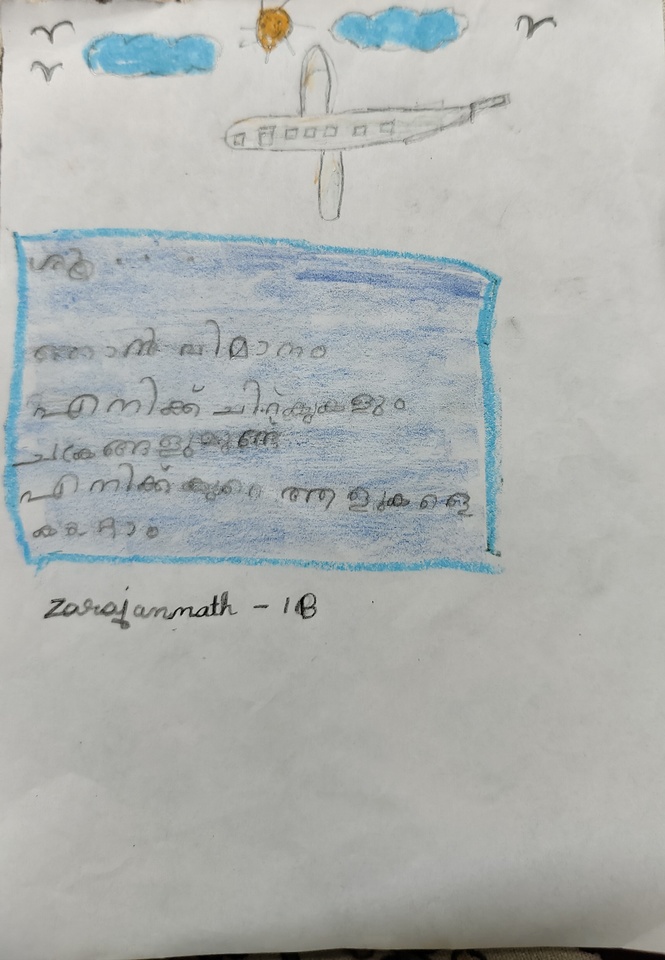 ശൂ . . .
ഞാൻ വിമാനം
എനിക്ക് ചിറകുകളും
ചക്രങ്ങളുമുണ്ട്
എനിക്ക് കുറെ ആളുകളെ
കയറ്റാം
Zarajannath - 1B